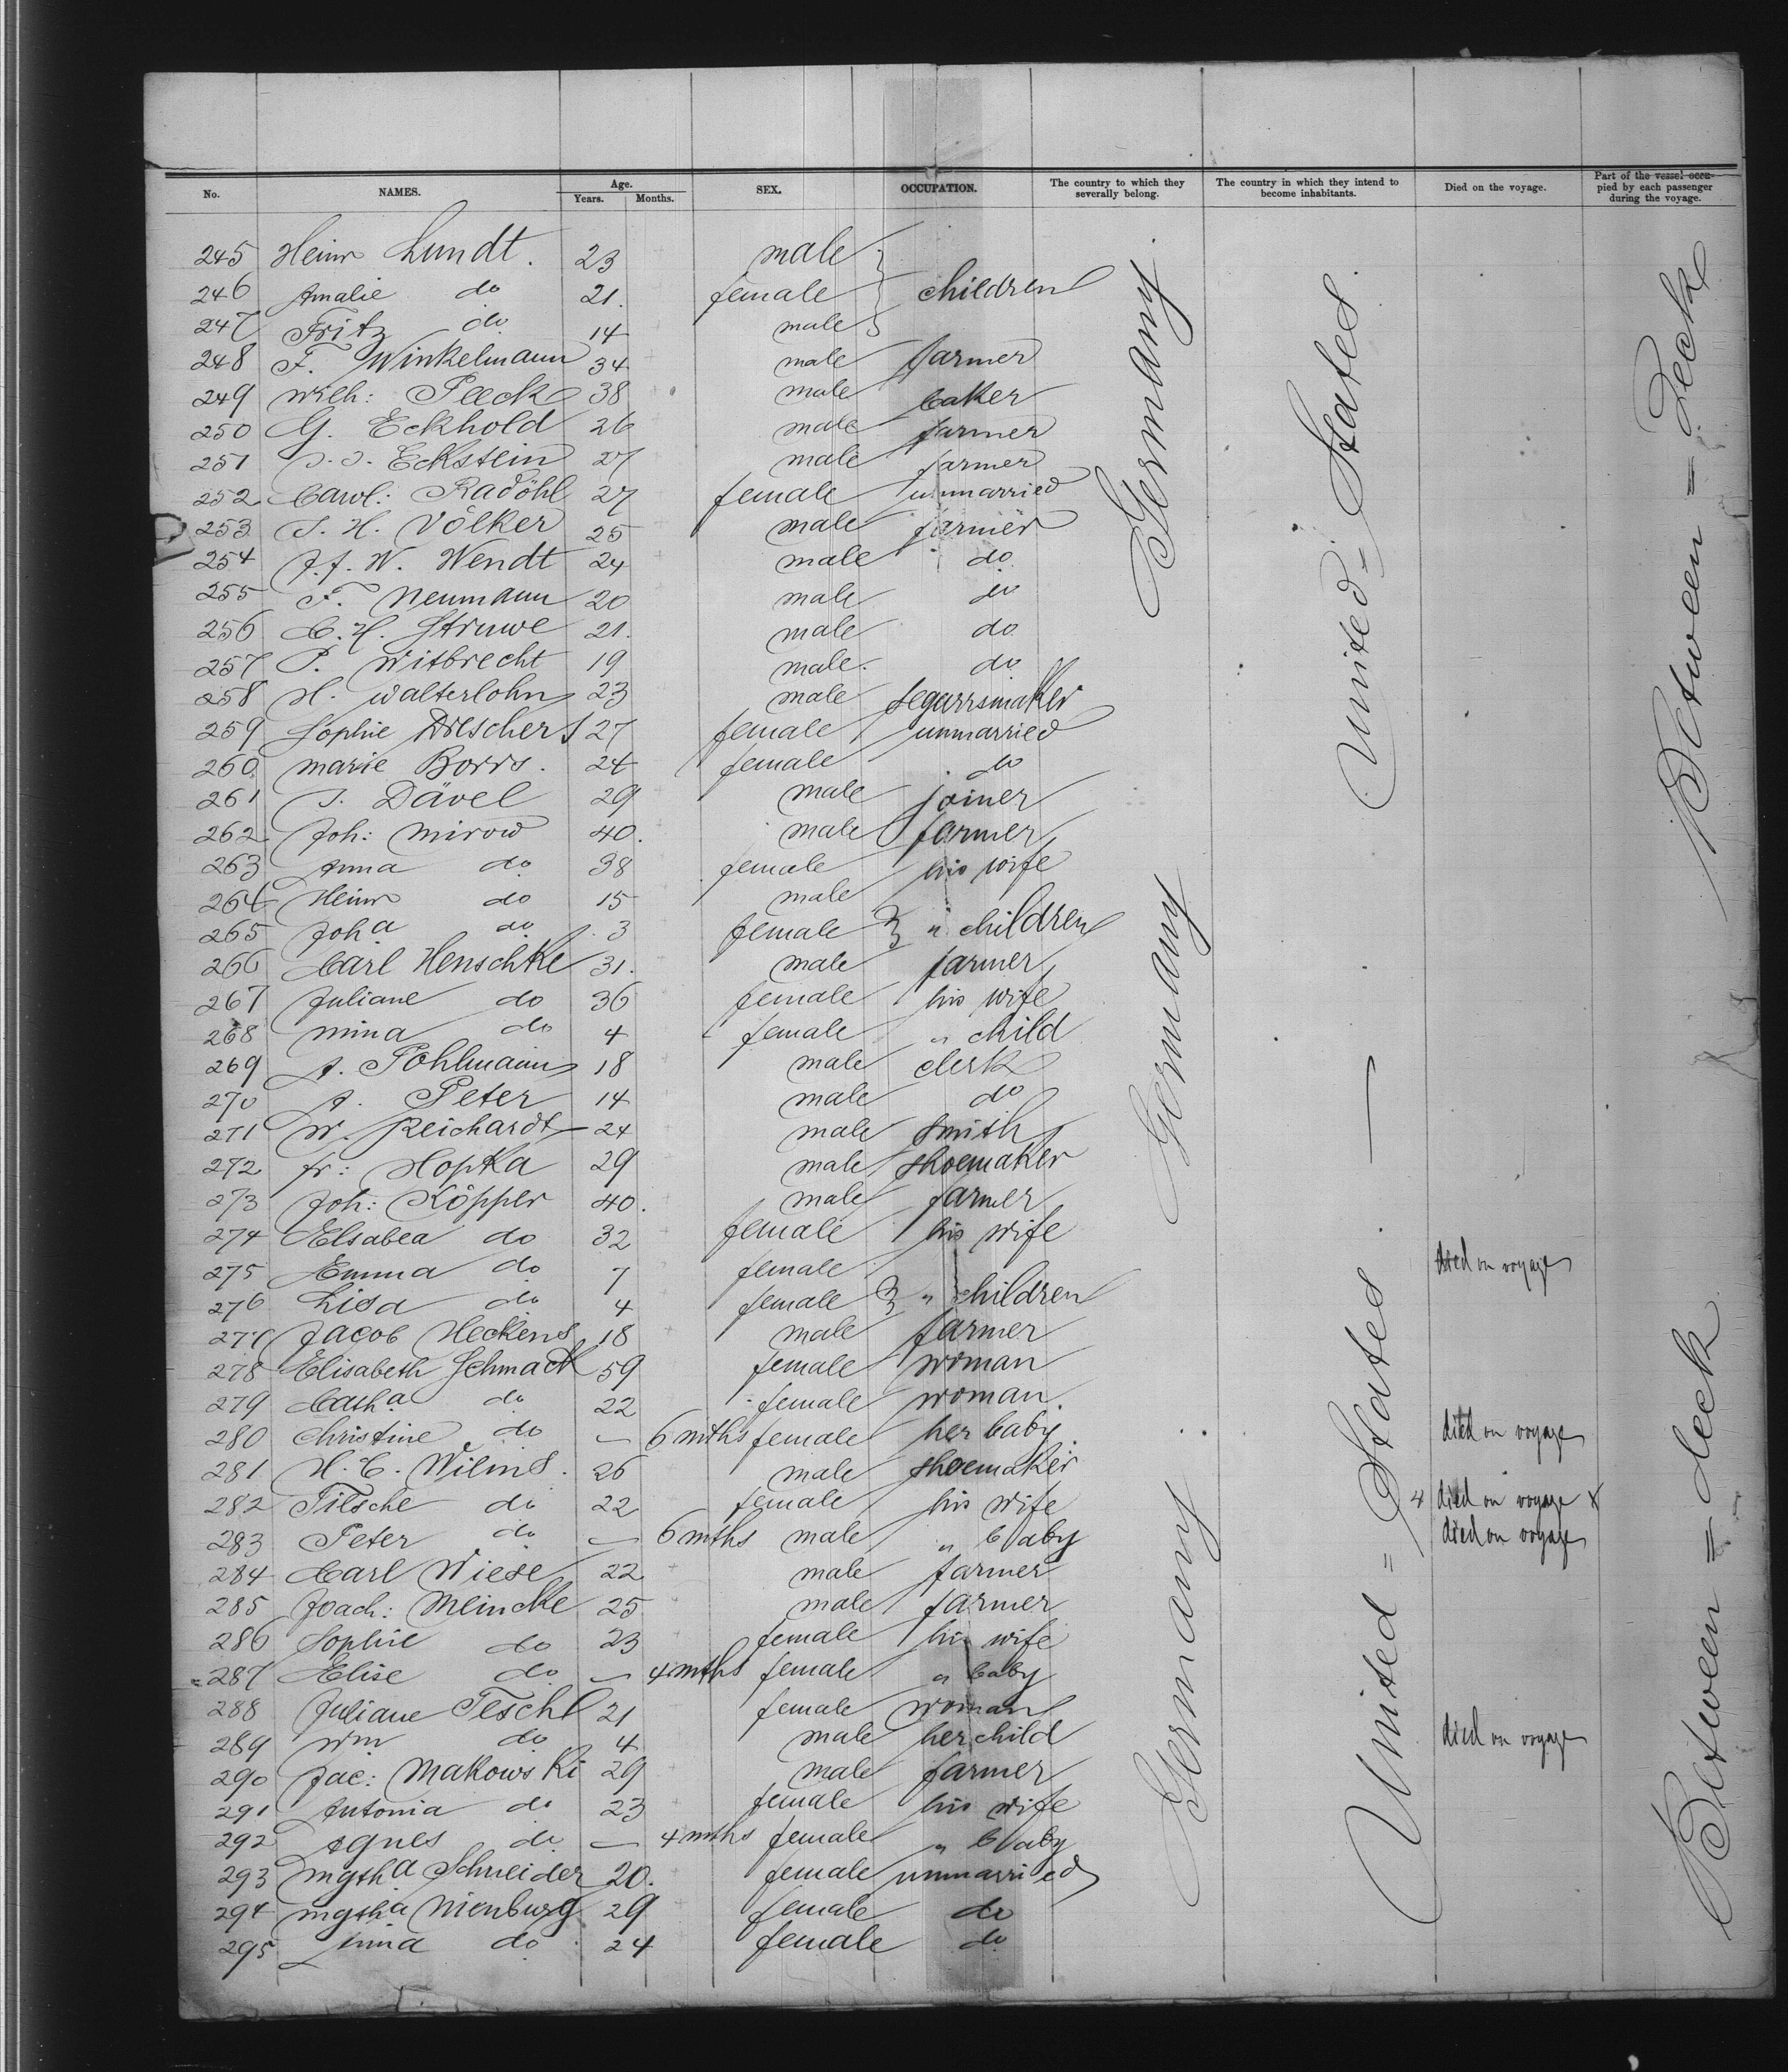 No. NAMES. Age. Years. Months. SEX. OCCUPATION. The country to which they severally belong. The country in which they intend to become inhabitants. Died on the voyage. Part of the vessel occupied by each passenger during the voyage.
245 Heinr Lundt. 23 male
246 Amalie do 21. female } children
247 Fritz do 14 male
248 F. Winkelmann 34 male farmer
249 Wilh: Peeck 38 male baker
250 G. Eckhold 26 male farmer
251 J. J. Eckstein 27 male farmer
252 Carol: Radöhl 27 female unmarried
253 J. H. Völker 25 male farmer
254 J. J. W. Wendt 24 male do.
255 F. Neumann 20 male do
256 C. H. Struwe 21. male do
257 P. Witbrecht 19 male. do
258 H. Walterlohn 23 male segarrsmaker
259 Sophie 27 female unmarried
260 Marie Borrs. 24 female do
261 J. Dävel 29 male joiner
262 Joh: Mirow 40. male farmer
263 Anna do 38 female his wife
264 Heinr do 15 male
265 Joha do 3 female } " children
266 Carl Henschke 31. male farmer
267 Juliane do 36 female his wife
268 Mina do 4 female " child
269 A. Pohlmann 18 male clerk
270 A. Peter 14 male do
271 W. Reichardt 24 male smith
272 Fr: Hopka 29 male shoemaker
273 Joh: Köpper 40. male farmer
274 Elsabea do 32 female his wife
275 Emma do 7 female died on voyage
276 Lisa do 4 female } " children
277 Jacob Heckens 18 male farmer
278 Elisabeth Schmack 59 female woman
279 Catha do 22 female woman.
280 Christine do — 6 mths female her baby. died on voyage
281 H. C. Wilms. 26 male shoemaker
282 Tilsche do 22 female his wife died on voyage x
283 Peter do — 6 mths male " baby died on voyage
284 Carl Wiese 22 male farmer
285 Joach: Meincke 25 male farmer
286 Sophie do 23 female his wife
287 Elise do — 4 mths female " baby
288 Juliane Teschl 21 female woman
289 Wm do 4 male her child died on voyage
290 Jac: Makowski 29 male farmer
291 Antonia do 23 female his wife
292 Agnes do — 4 mths female " baby
293 Mgtha Schneider 20. female unmarried
294 Mgtha Nienburg 29 female do
295 Lina do 24 female do
Germany
Germany
Germany
United = States.
United = States
Between = Deck
Between = deck